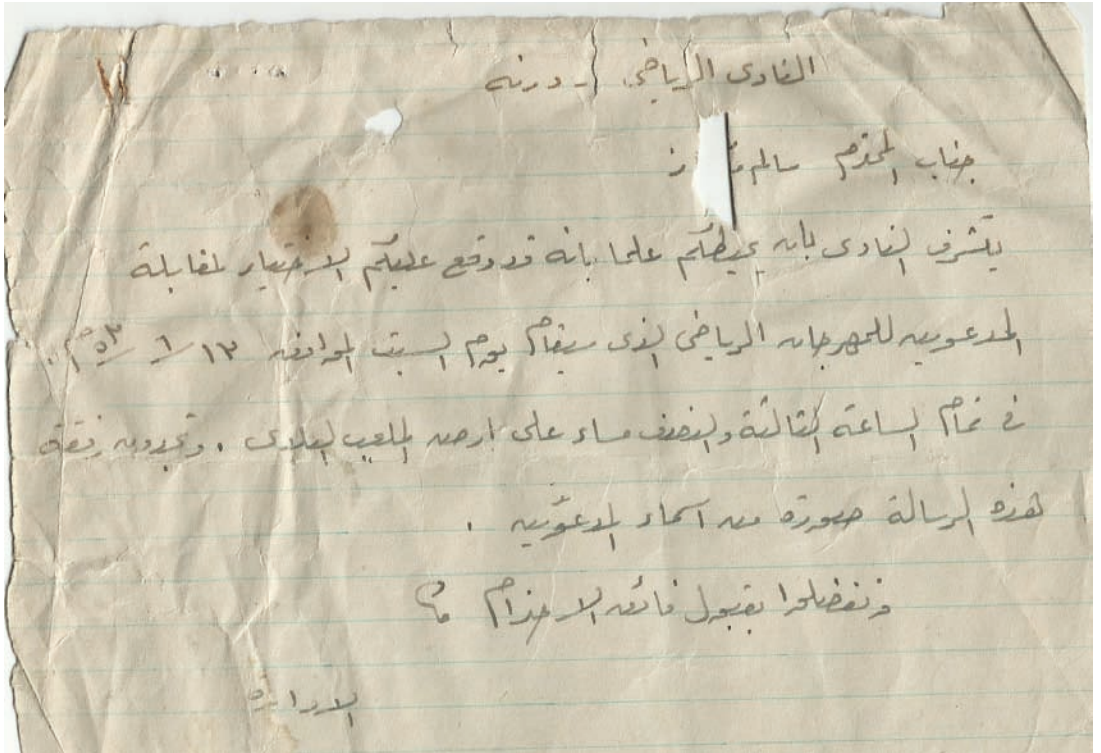 النادى الرياضى - درنه
جناب المحترم سالم
يتشرف النادى بان يحيطكم علما بانه قد وقع عليكم الاختيار لمقابلة
المدعوين للمهرجان الرياضى الذى سيقام يوم السبت الموافق ١٣/٦/٥٣م.
فى تمام الساعة الثالثة والنصف مساء على ارض الملعب البلدى . وتجدون رفقة
هذه الرسالة صورة من اسماء المدعوين .
وتفضلوا بقبول فائق الاحترام
الادارة